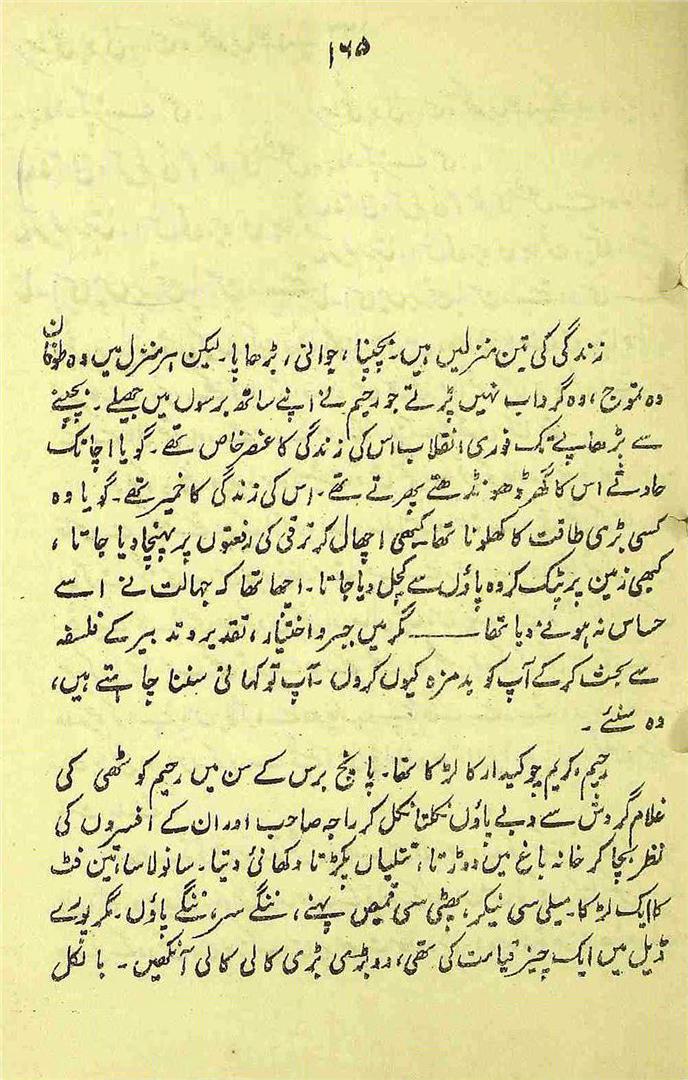 ۱۶۵
زندگی کی تین منزلیں ہیں۔ بچپنا، جوانی، بڑھاپا۔ لیکن ہر منزل میں وہ طوفان
وہ تموج، وہ گرداب نہیں پڑتے جو رحیم نے اپنے ساٹھ برسوں میں جھیلے۔ بچپنے
سے بڑھاپے تک فوری انقلاب اس کی زندگی کا عنصر خاص تھے۔ گویا اچانک
حادثے اس کا گھر ڈھونڈھتے پھرتے تھے۔ اس کی زندگی کا خمیر تھے۔ گویا وہ
کسی بڑی طاقت کا کھلونا تھا۔ کبھی اچھال کر ترقی کی رفعتوں پر پہنچا دیا جاتا،
کبھی زمین پر پٹک کر وہ پاؤں سے کچل دیا جاتا۔ اچھا تھا کہ جہالت نے اسے
حساس نہ ہونے دیا تھا ——— مگر میں جبر و اختیار، تقدیر و تدبیر کے فلسفہ
سے بحث کر کے آپ کو بدمزہ کیوں کروں۔ آپ تو کہانی سننا چاہتے ہیں،
وہ سنئے۔
رحیم، کریم چوکیدار کا لڑکا تھا۔ پانچ برس کے سن میں رحیم کوٹھی کی
غلام گردش سے دبے پاؤں نکلتا نکل کر راجہ صاحب اور ان کے افسروں کی
نظر بچا کر خانہ باغ میں دوڑتا، تتلیاں پکڑتا دکھائی دیتا۔ سانولا سا، تین فٹ
کا ایک لڑکا۔ میلی سی نیکر، پھٹی سی قمیص پہنے، ننگے سر، ننگے پاؤں۔ مگر پورے
ڈیل میں ایک چیز قیامت کی تھی، دو بڑی بڑی کالی کالی آنکھیں۔ بالکل